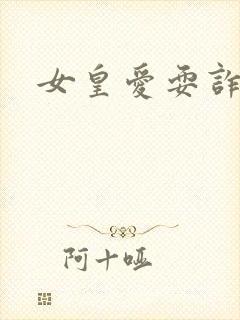 女皇愛耍詐
阿十哑